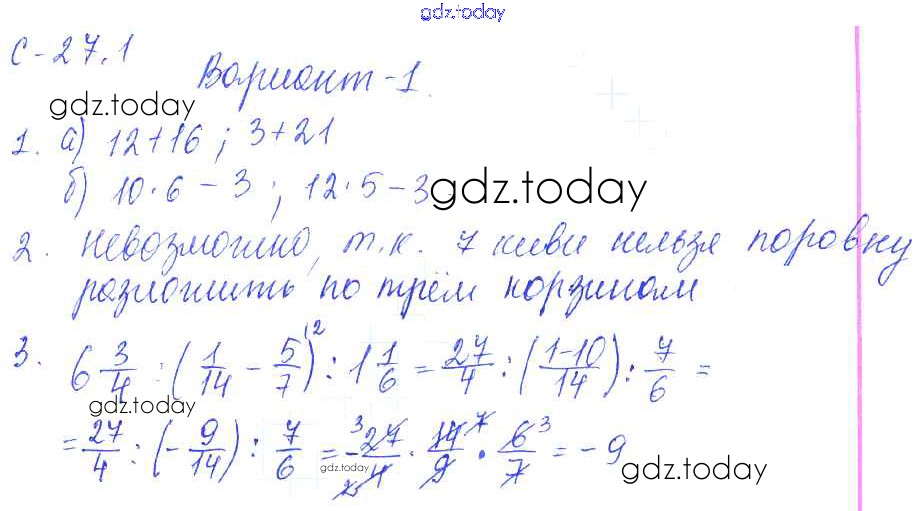 gdz.today
С-27.1
Вариант-1.
gdz.today
1. а) 12+16 ; 3+21
б) 10·6-3 ; 12·5-3
gdz.today
2. Невозможно, т.к. 7 киви нельзя поровну
разложить по трём корзинам
3. 6 3/4 : (1/14 - 5/7^(2) : 1 1/6 = 27/4 : (1-10/14) : 7/6 =
gdz.today
= 27/4 : (-9/14) : 7/6 = -27/4 · 14/9 · 6/7 = -9
gdz.today
gdz.today